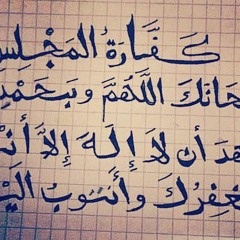 كَفَّارَةُ الْمَجْلِسِ
حَانَكَ اللَّهُمَّ وَبِحَمْدِ
هَدُ أَن لَا إِلَهَ إِلَّا أَنْتَ
غْفِرُكَ وَأَتُوبُ إِلَيْ